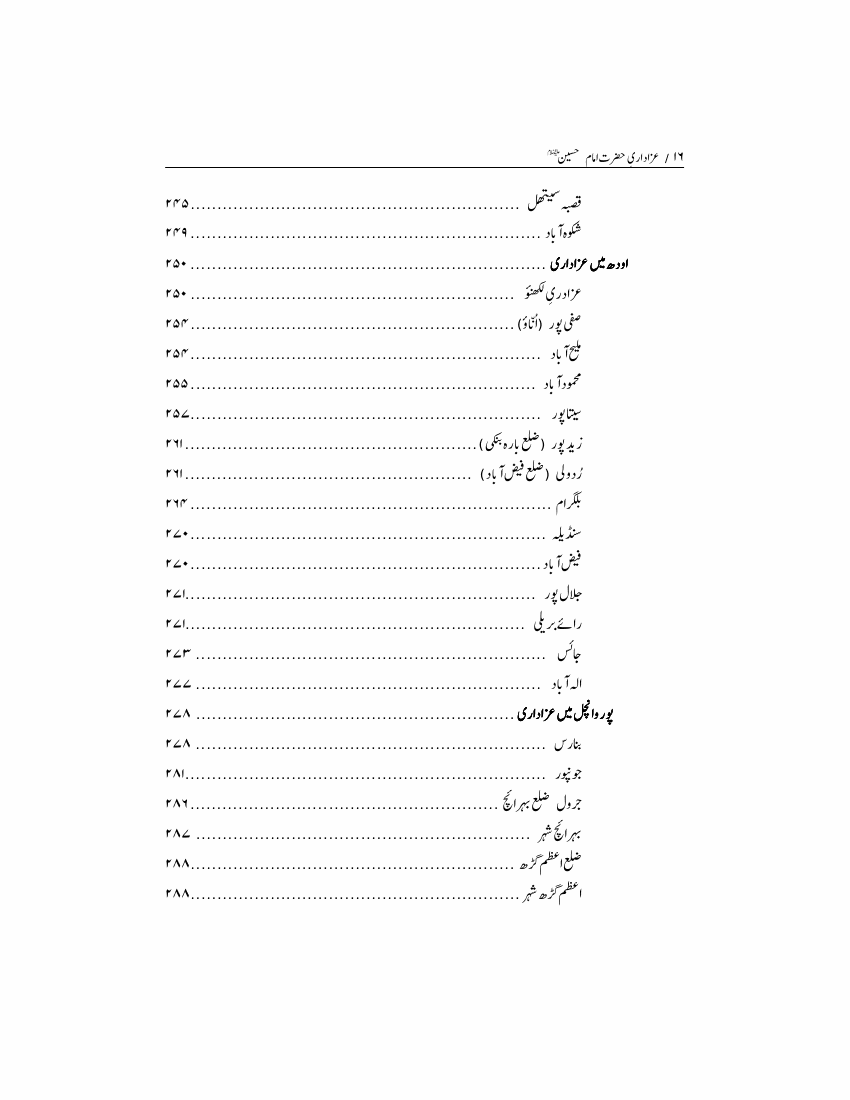 ۱۶ / عزاداری حضرت امام حسینؑ
قصبہ سیتھل ............................................................. ۲۴۵
شکوہ آباد ................................................................. ۲۴۹
اودھ میں عزاداری .................................................................. ۲۵۰
عزادریِ لکھنؤ ............................................................ ۲۵۰
صفی پور (اُنّاؤ) ............................................................ ۲۵۴
ملیح آباد ................................................................. ۲۵۴
محمود آباد ................................................................ ۲۵۵
سیتاپور ................................................................. ۲۵۷
زید پور (ضلع بارہ بنکی) ...................................................... ۲۶۱
رُدولی (ضلع فیض آباد) ..................................................... ۲۶۱
بلگرام ................................................................... ۲۶۴
سنڈیلہ .................................................................. ۲۷۰
فیض آباد ................................................................. ۲۷۰
جلال پور ................................................................. ۲۷۱
رائے بریلی ............................................................... ۲۷۱
جائس ................................................................. ۲۷۳
الہ آباد ................................................................ ۲۷۷
پوروانچل میں عزاداری ........................................................... ۲۷۸
بنارس ................................................................. ۲۷۸
جونپور ................................................................... ۲۸۱
جرول ضلع بہرائچ ......................................................... ۲۸۶
بہرائچ شہر .............................................................. ۲۸۷
ضلع اعظم گڑھ ............................................................ ۲۸۸
اعظم گڑھ شہر ............................................................. ۲۸۸